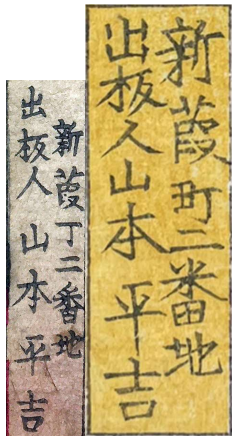 新葭町二番地
出板人山本平吉
新葭丁二番地
出板人 山本平吉